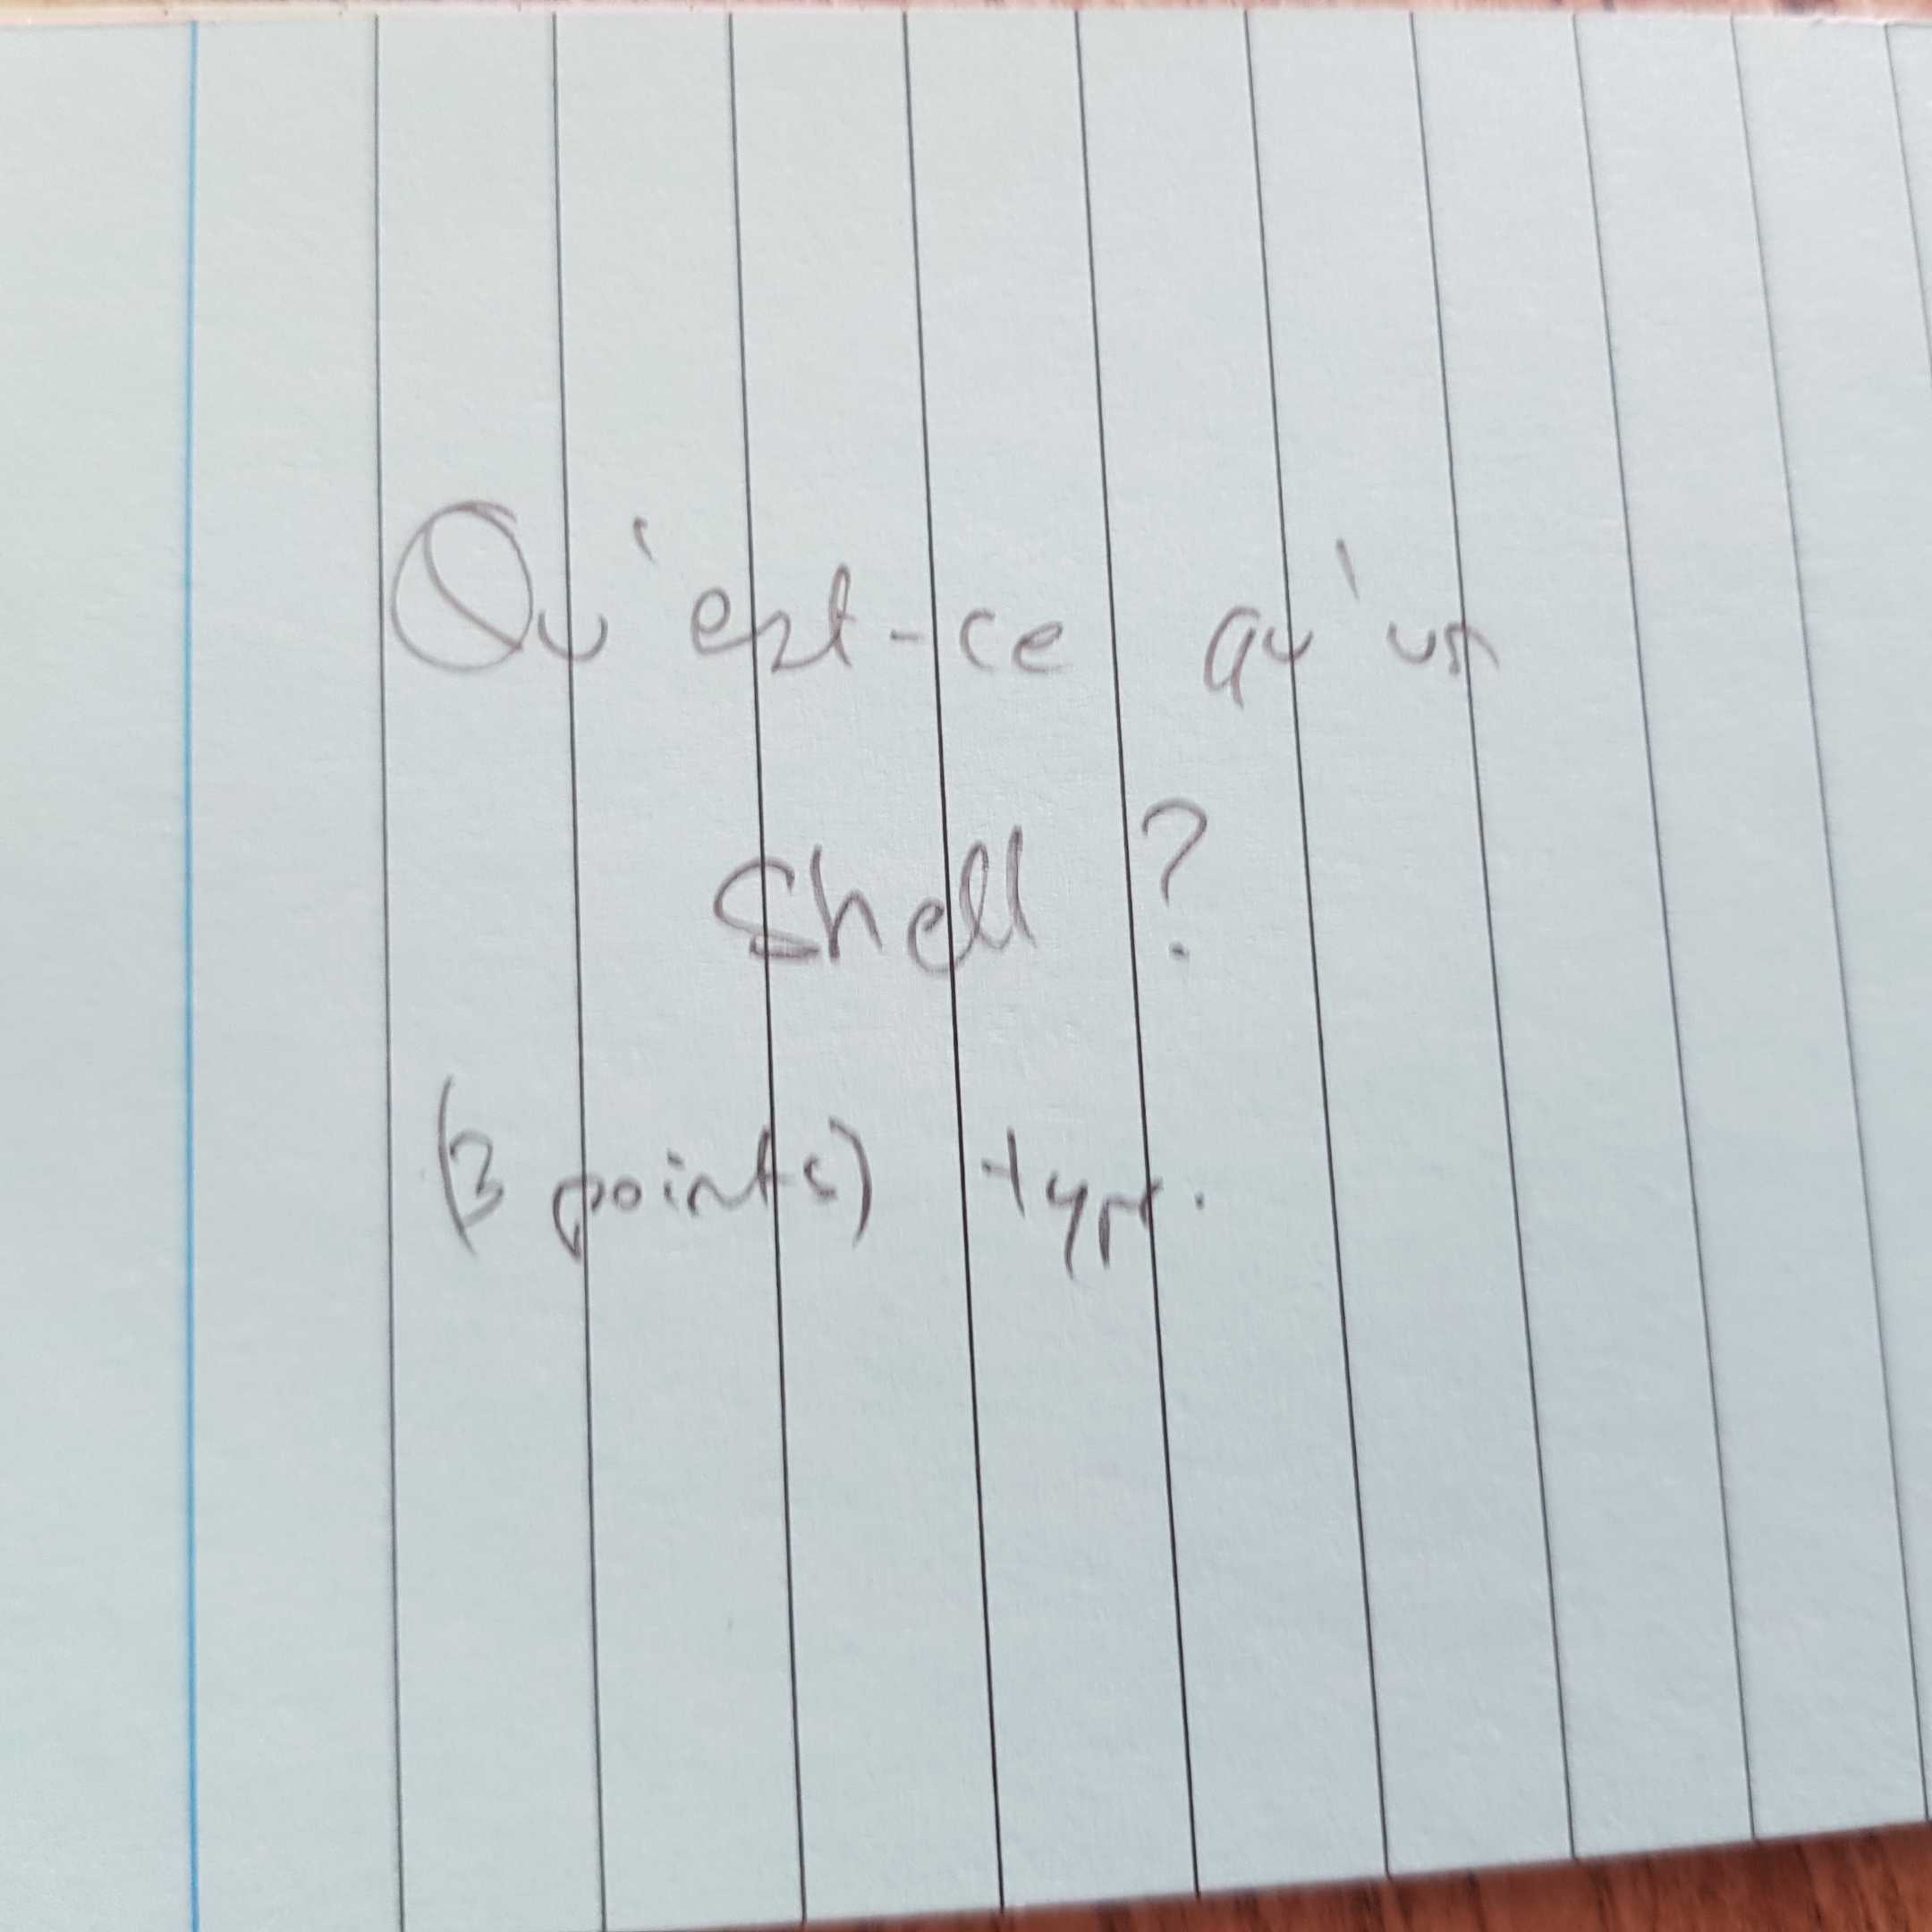 Qu'est-ce qu'un
Shell ?
(3 points) type.